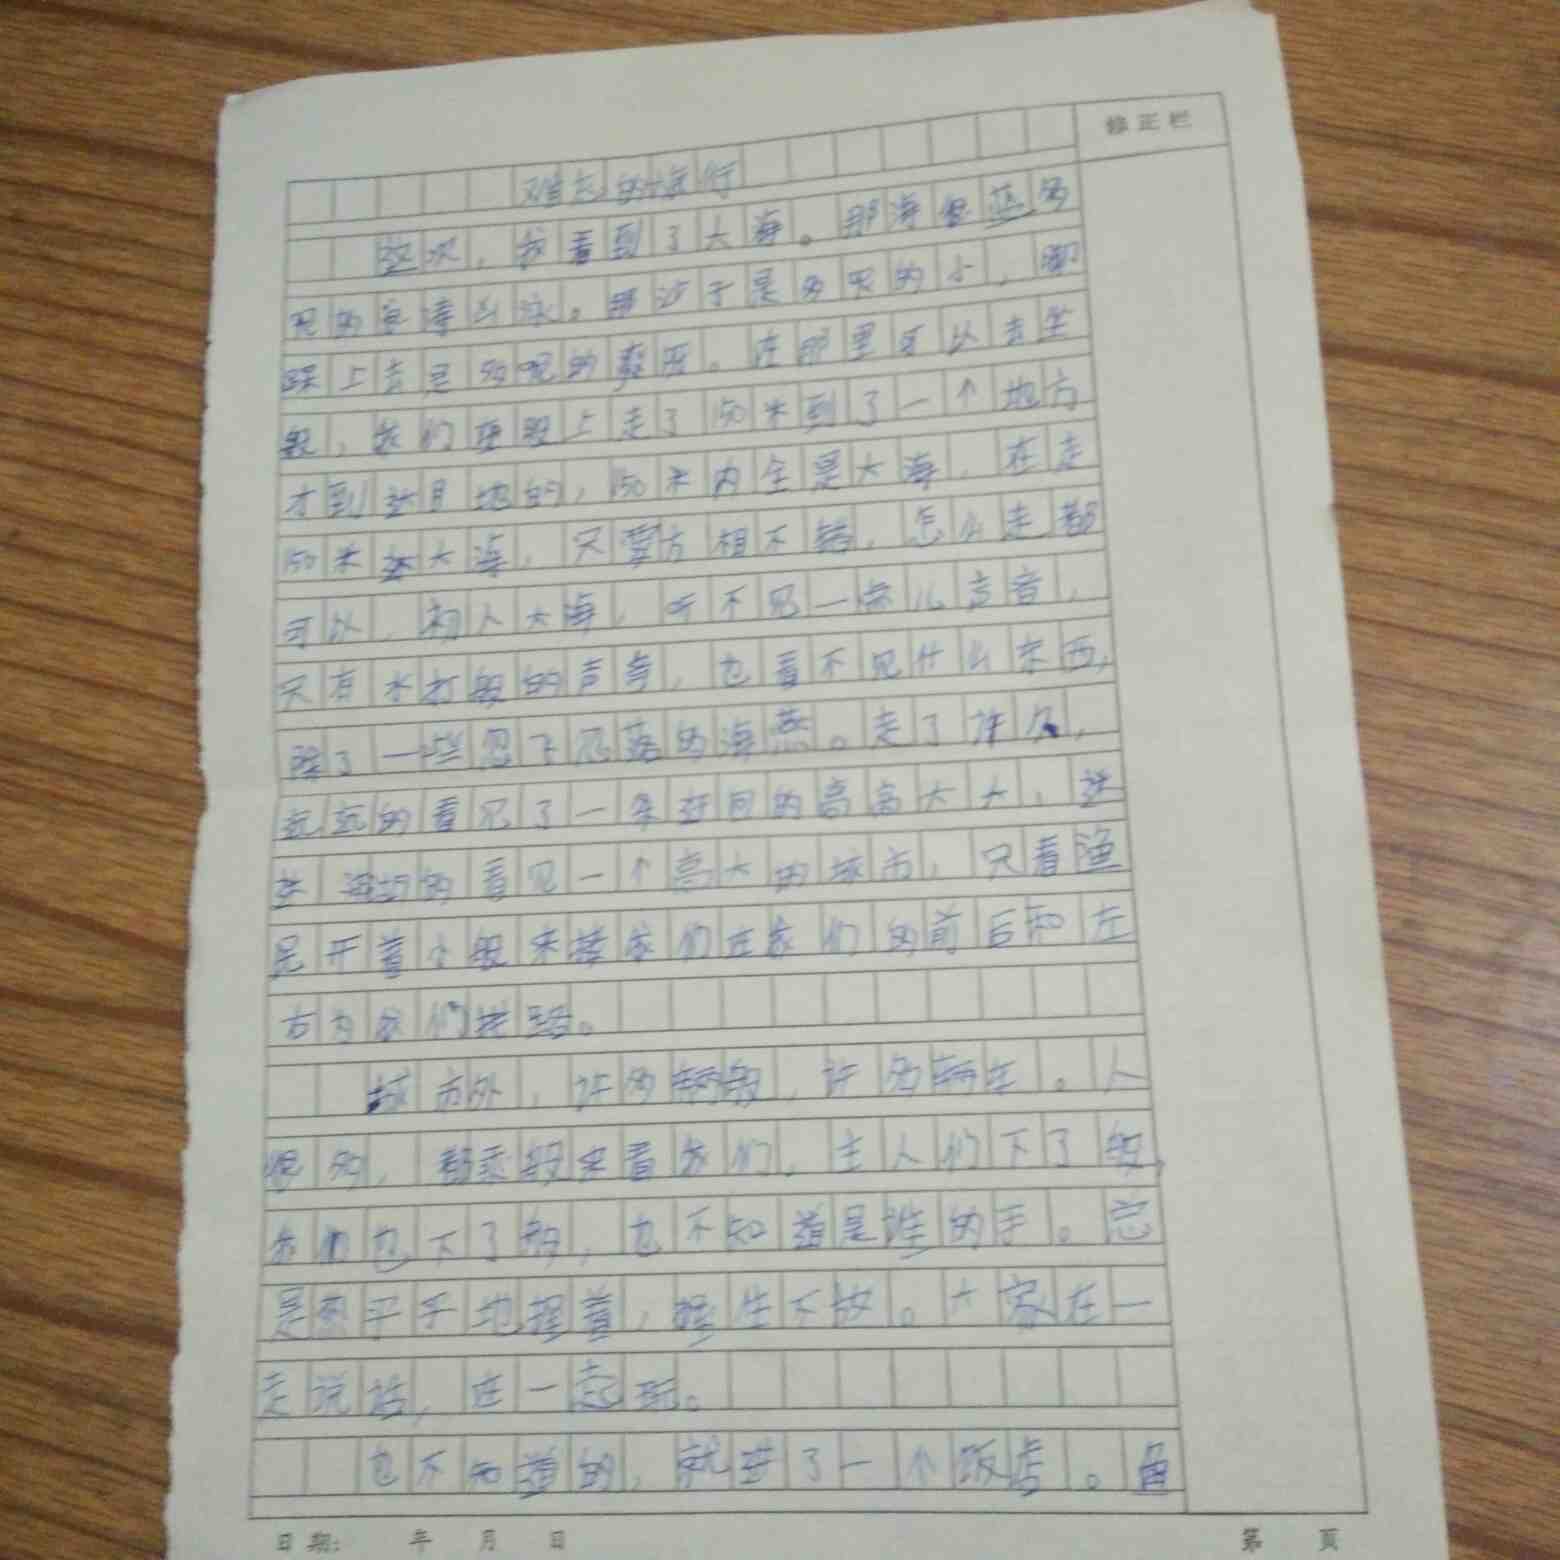 修正栏
难忘的旅行
这次，我看到了大海。那海是蓝多
的鱼得出泳。那沙子是多见的小，脚
踩上去是多呢的柔软。在那里可以去坐
船，我们在船上走了150米到了一个地方
才到达目地的，150米内全是大海，在走
150米达大海，只要方相不错，怎么走都
可以，初人大海，听不见一点儿声音，
只有水打船的声音，也看不见什么东西，
除了一些忽飞忽落的海燕。走了许久，
远远的看见了一条的高高大大，
的看见一个高大的城市，只看渔
民开着小船来接我们在我们的前后和左
右为我们找路。
城市外，许多辆船，许多辆车。人
很多，都乘船来看我们，主人们下了船，
我们也下了船，也不知道是谁的手。总
是平手地握着，握住不放。大家在一
走说话，在一起玩。
也不知道的，就进了一个饭店。鱼
日期： 年 月 日
第 页